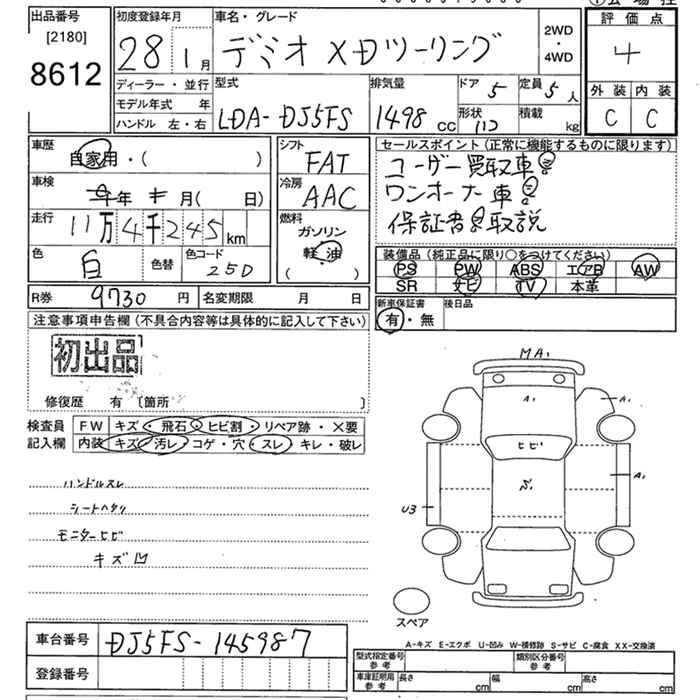 出品番号
[2180]
8612
初度登録年月
28 1月
車名・グレード
デミオ XDツーリング
2WD
・
4WD
評価点
4
外装 内装
C C
ディーラー・並行
モデル年式 年
ハンドル 左・右
型式
LDA-DJ5FS
排気量
1498 CC
ドア 5
定員 5人
形状
積載 kg
車歴
自家用・( )
車検
年 月( 日)
走行
11万4千245km
色
白
色替
色コード
25D
シフト
FAT
冷房
AAC
燃料
ガソリン
軽油
( )
セールスポイント(正常に機能するものに限ります)
ユーザー買取車
ワンオーナー車
保証書 取説
装備品(純正品に限り○をつけてください)
PS PW ABS エアB AW
SR ナビ TV 本革
R券 9730円
名変期限 月 日
新車保証書
有・無
後日品
注意事項申告欄(不具合内容等は具体的に記入して下さい)
初出品
修復歴 有 〔箇所 〕
検査員
記入欄
FW キズ・飛石・ヒビ割・リペア跡・×要
内装 キズ・汚レ・コゲ・穴・スレ・キレ・破レ
ハンドルスレ
シートヘタリ
モニターヒビ
キズ凹
MA1
A1
A1
ヒビ
A1
U3
スペア
A-キズ E-エクボ U-凹み W-補修跡 S-サビ C-腐食 XX-交換済
車台番号
DJ5FS-145987
登録番号
型式指定番号
参考
類別区分番号
参考
車庫証明用
参考
長さ cm
幅 cm
高さ cm